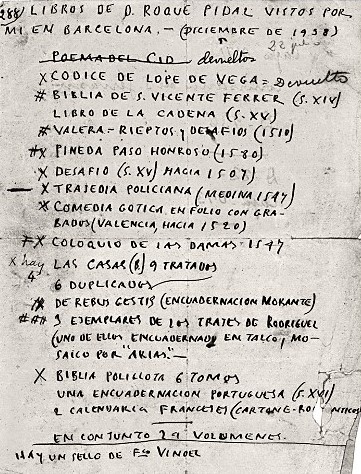 288) LIBROS DE D. ROQUE PIDAL VISTOS POR
MI EN BARCELONA. — (DICIEMBRE DE 1938)
22
POEMA DEL CID devueltos
X CODICE DE LOPE DE VEGA = Devuelto
# BIBLIA DE S. VICENTE FERRER (S. XIV)
LIBRO DE LA CADENA (S. XV)
# VALERA.- RIEPTOS y DESAFIOS (1510)
#X PINEDA PASO HONROSO (1580)
X DESAFIO (S. XV) HACIA 1507)
— X TRAJEDIA POLICIANA (MEDINA 1547)
X COMEDIA GOTICA EN FOLIO CON GRA-
BADOS (VALENCIA, HACIA 1520)
X COLOQUIO DE LAS DAMAS 1547
X hay LAS CASAS (B) 9 TRATADOS
4
6 DUPLICADOS
# DE REBUS GESTIS (ENCUADERNACION MORANTE)
### 3 EJEMPLARES DE LOS TRATES DE RODRIGUEZ
(UNO DE ELLOS ENCUADERNADO EN TALCO, MO-
SAICO POR "ARIAS" —
X BIBLIA POLIGLOTA 6 TOMOS
UNA ENCUADERNACION PORTUGUESA (S. XVI)
2 CALENDARIOS FRANCESES (CARTONE-ROMANTICOS
EN CONJUNTO 29 VOLUMENES.
HAY UN SELLO DE Fco VINDEL